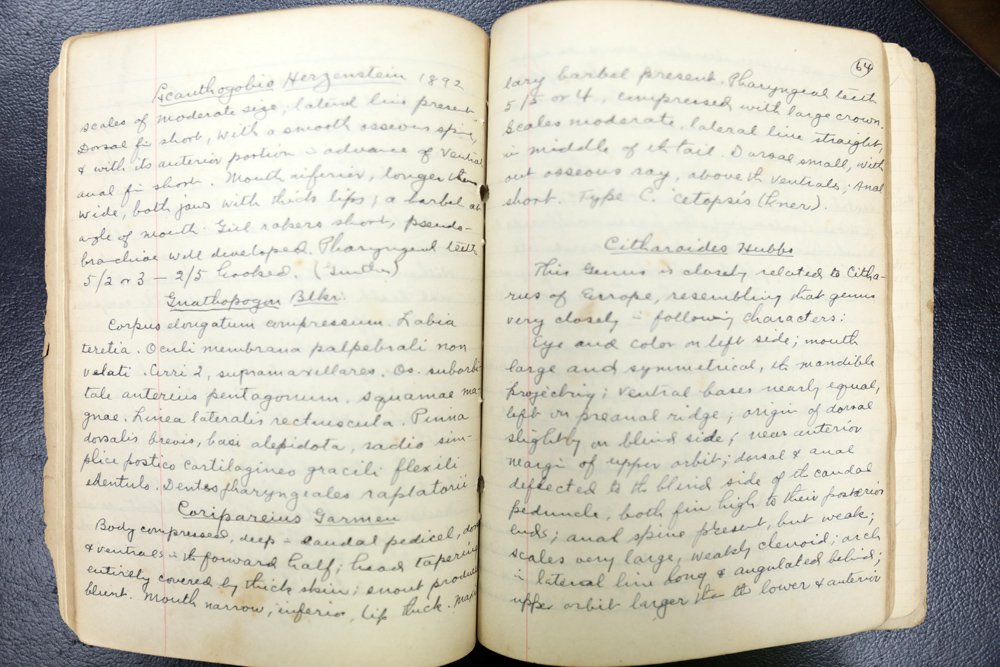 Acanthogobio Herzenstein 1892
scales of moderate size, lateral line present
Dorsal fin short, with a smooth osseous spine,
& with its anterior portion in advance of ventral
anal fin short. Mouth inferior, longer than
wide, both jaws with thick lips; a barbel at
angle of mouth. Gill rakers short, pseudo-
branchiae well developed. Pharyngeal teeth
5/2 or 3 — 2/5 hooked. (Gunther)
Gnathopogon Blkr.
Corpus elongatum compressum. Labia
teretia. Oculi membrana palpebrali non
velati. Cirri 2, supramaxillares. Os. suborbi-
tale anterius pentagonum. squamae ma-
gnae. Linea lateralis rectiuscula. Pinna
dorsalis brevis, basi alepidota, radio sim-
plice postico cartilagineo gracili flexili
edentulo. Dentes pharyngeales raptatorii
Coripareius Garman
Body compressed, deep in caudal pedicel, dorsal
& ventrals in the forward half; head tapering
entirely covered by thick skin; snout produced
blunt. Mouth narrow, inferior, lip thick. Maxil
64
lary barbel present. Pharyngeal teeth
5/5 or 4, compressed with large crown.
Scales moderate, lateral line straight,
in middle of the tail. Dorsal small, with
out osseous ray, above the ventrals; Anal
short. Type C. cetopsis (Kner).
Citharoides Hubbs
This Genus is closely related to Citha-
rus of Europe, resembling that genus
very closely in following characters:
Eye and color on left side; mouth
large and symmetrical, the mandible
projecting; ventral bases nearly equal,
left on preanal ridge; origin of dorsal
slightly on blind side, near anterior
margin of upper orbit; dorsal & anal
deflected to the blind side of the caudal
peduncle, both fin high to their posterior
ends; anal spine present, but weak;
scales very large, weakly ctenoid; arch
in lateral line long & angulated behind;
upper orbit larger than the lower & anterior